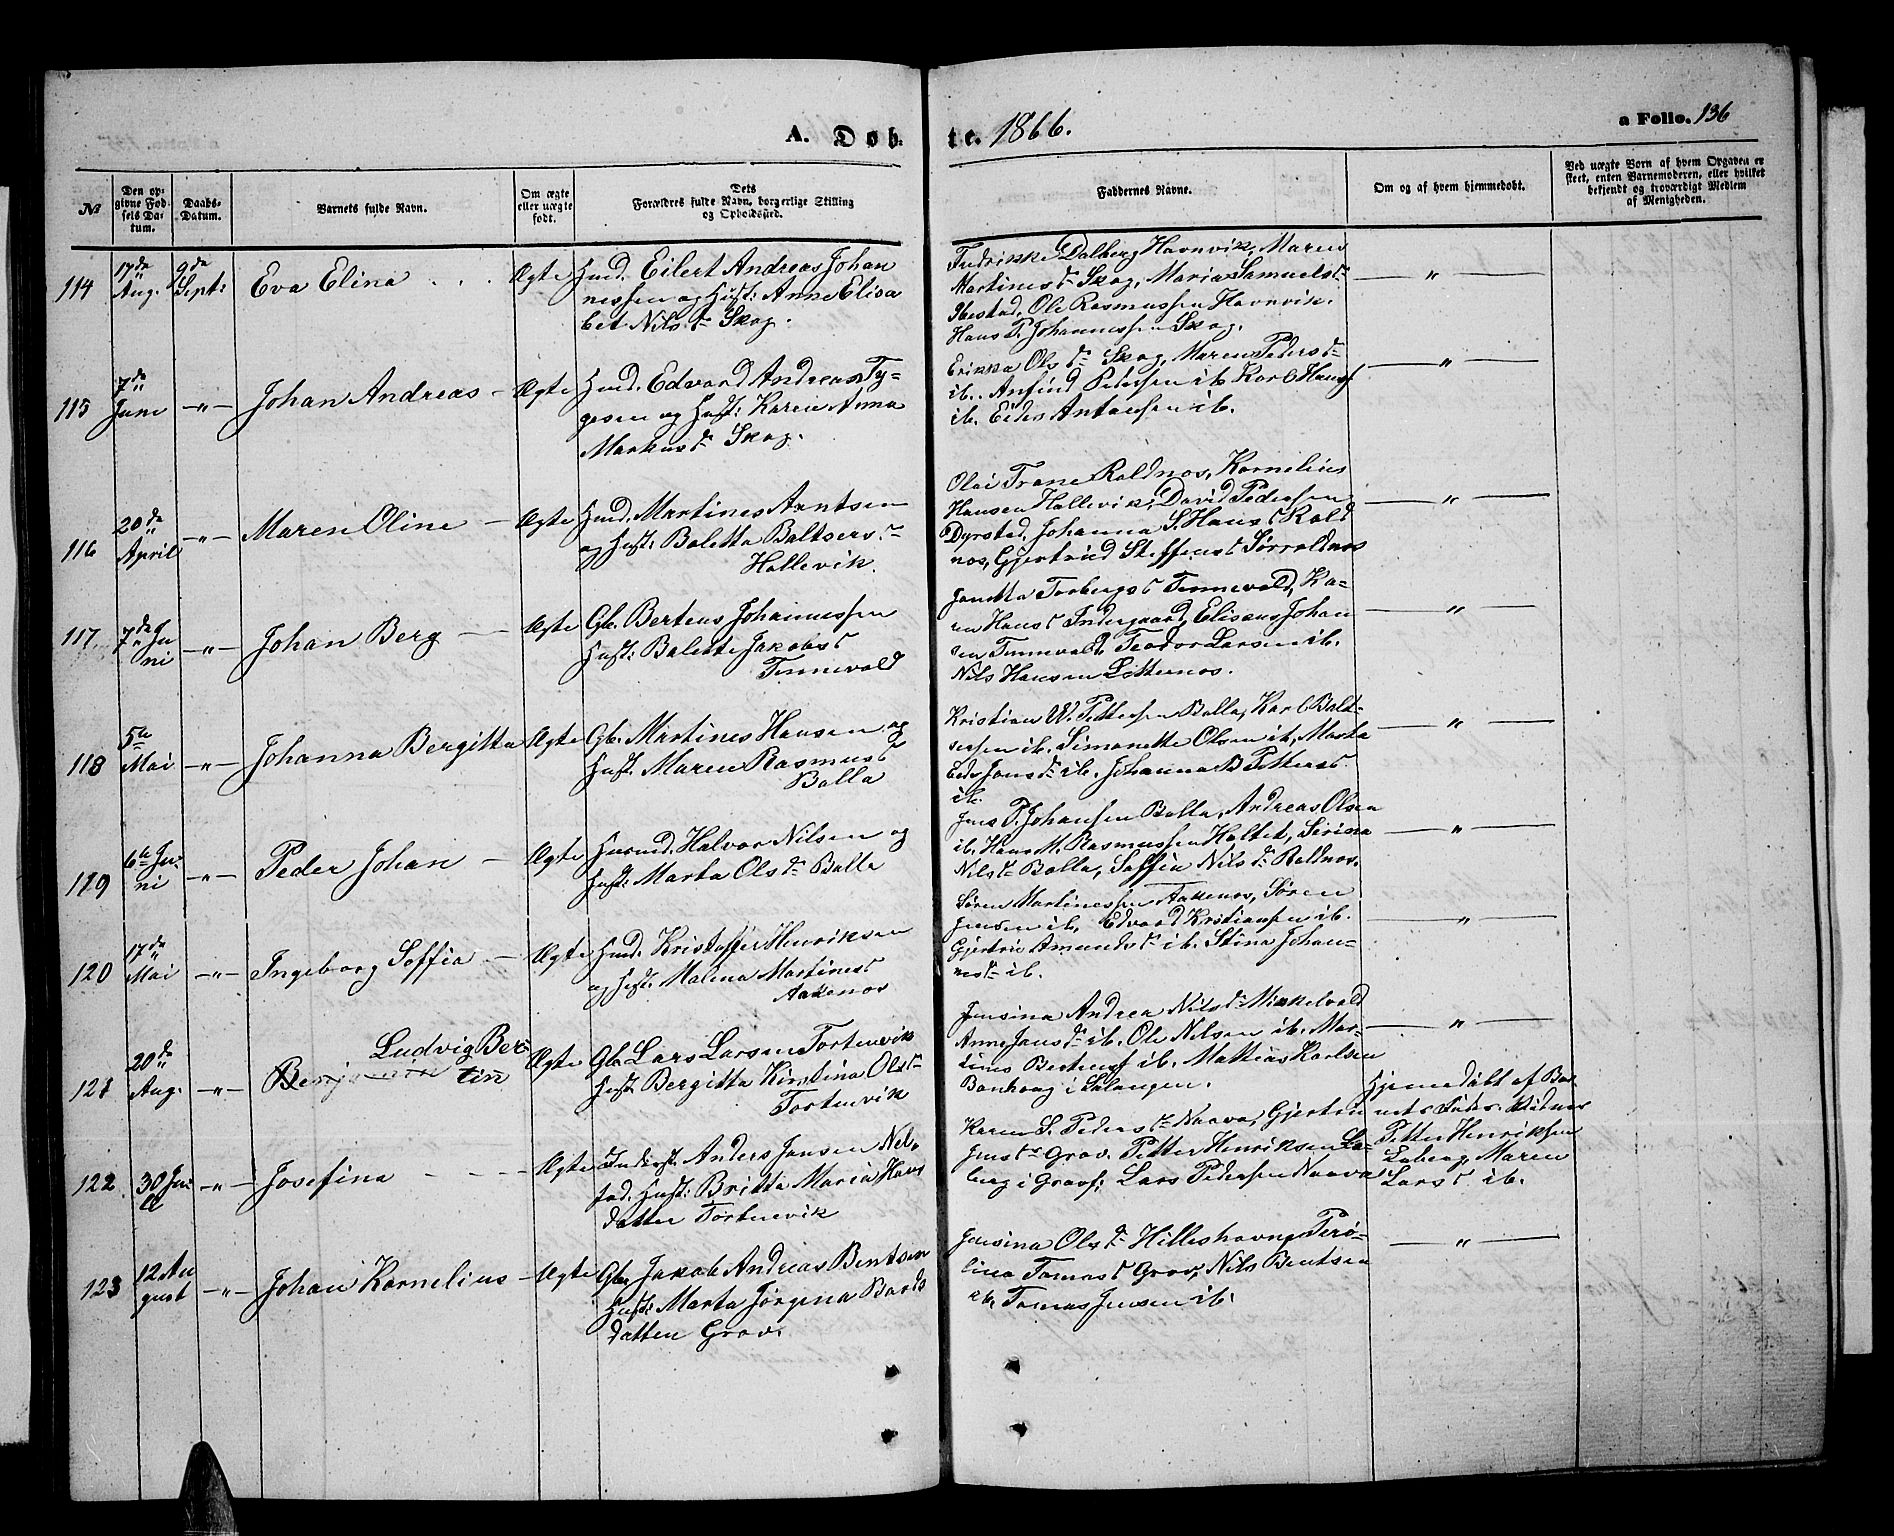 A. Døb-
te. 1866.
a Folio. 136
№
Den op-
givne Fød-
sels Da-
tum.
Daabs-
Datum.
Barnets fulde Navn.
Om ægte
eller uægte
født.
Dets
Forældres fulde Navn, borgerlige Stilling
og Opholdssted.
Faddernes Navne.
Om og af hvem hjemmedøbt.
Ved uægte Børn af hvem Opgaven er
skeet, enten Barnemoderen, eller hvilket
bekjendt og troværdigt Medlem
af Menigheden.
114
17de
Aug.
9de
Sept:
Eva Elina . . .
Ægte
Huusmd. Eilert Andreas Johan
nessen og Hust: Anne Elisa
bet Nilsdr Skog.
Fredrikke Dalberg Havnvik, Maren
Martinesdr Skog, Maria Samuelsdr
Ibestad, Ole Rasmussen Havnvik.
Hans P. Johannessen Skog.
— " —
115
7de
Juni
— " —
Johan Andreas —
Ægte
Huusmd. Edvard Andreas Ty-
gesen og Hust: Karen Anna
Markusdr Skog.
Erikka Olsdr Skog, Maren Pedersdr
ib. Anfind Petersen ib. Karl Hansf
ib. Eider Antonsen ib.
— " —
116
20de
April
— " —
Maren Oline —
Ægte
Huusmd. Martines Arntsen
og Hust: Baletta Baltsersdr
Hallevik.
Olai Trane Roldnos, Kornelius
Hansen Hallevik, David Pedersen
Dyrstad, Johanna S. Hansd Rold
nos, Gjertrud Steffensd Sørroldnos
— " —
117.
7de Ju
ni
— " —
Johan Berg —
Ægte
Gb. Berteus Johannessen
Hust: Balette Jakobsd
Tennevold
Janetta Torbergsd Tennevold, Ka-
ren Hansd Indergaard, Eliseus Johan
sen Tennevold, Teodor Larsen ib.
Nils Hansen Løtternos.
— " —
118
5te
Mai
— " —
Johanna Bergitta
Ægte
Gb. Martines Hansen og
Hust. Maren Rasmusd
Bolla
Kristian W. Pettersen Bolla, Karl Balt-
sersen ib. Simonette Olsen ib, Marta
Jonsdr ib. Johanna B Pettersd
ib.
— " —
119
6te Ju-
ni
— " —
Peder Johan —
Ægte
Huusmd. Halvor Nilsen og
Hust: Marta Olsdr Bolle
Jens P. Johansen Bolla, Andreas Olsen
ib, Hans M. Rasmussen Haltet, Serina
Nilsdr Bolla, Soffia Nilsdr Roldnos.
— " —
120
17de
Mai
— " —
Ingeborg Soffia —
Ægte
Huusmd. Kristoffer Henriksen
og Hust: Malena Martinesd
Aakenos
Søren Martinessen Aakenos, Søren
Jensen ib, Edvard Kristiansen ib.
Gjertrud Amundsdr ib. Stina Johan-
nesdr ib.
— " —
121
20de
Aug.
— " —
Ludvig Ber-
Benjamin tin
Ægte
Gb. Lars Larsen Tortenvik
Hust. Bergitta Kirstina Olsdr
Tortenvik
Jensina Andrea Nilsdr Mikkelvold
Anne Jansdr ib. Ole Nilsen ib. Mar-
tines Bertensf ib. Mattias Karlsen
Bonhoug i Salangen.
— " —
122
30 Ju-
li
— " —
Josefina - - - -
Ægte
Inderst. Anders Jonsen Nil-
sad. Hust: Britta Maria Hans
datter Tortenvik
Karen S. Pedersdr Naava, Gjertru
Jensdr Grov, Petter Henriksen La-
berg i Gravf; Lars Pedersen Naava
Hjemedøbt af Bar-
nets Fader. Vidner
Petter Henriksen
Laberg, Maren
Larsd ib.
123
12 Au
gust
— " —
Johan Kornelius —
Ægte
Gbr Jakob Andreas Bentsen
Hust: Marta Jørgena Bords
datten Grov.
Jensina Olsdr Hilleshavn, Perø-
lina Tomasd Grov, Nils Bentsen
ib, Tomas Jensen ib.
— " —